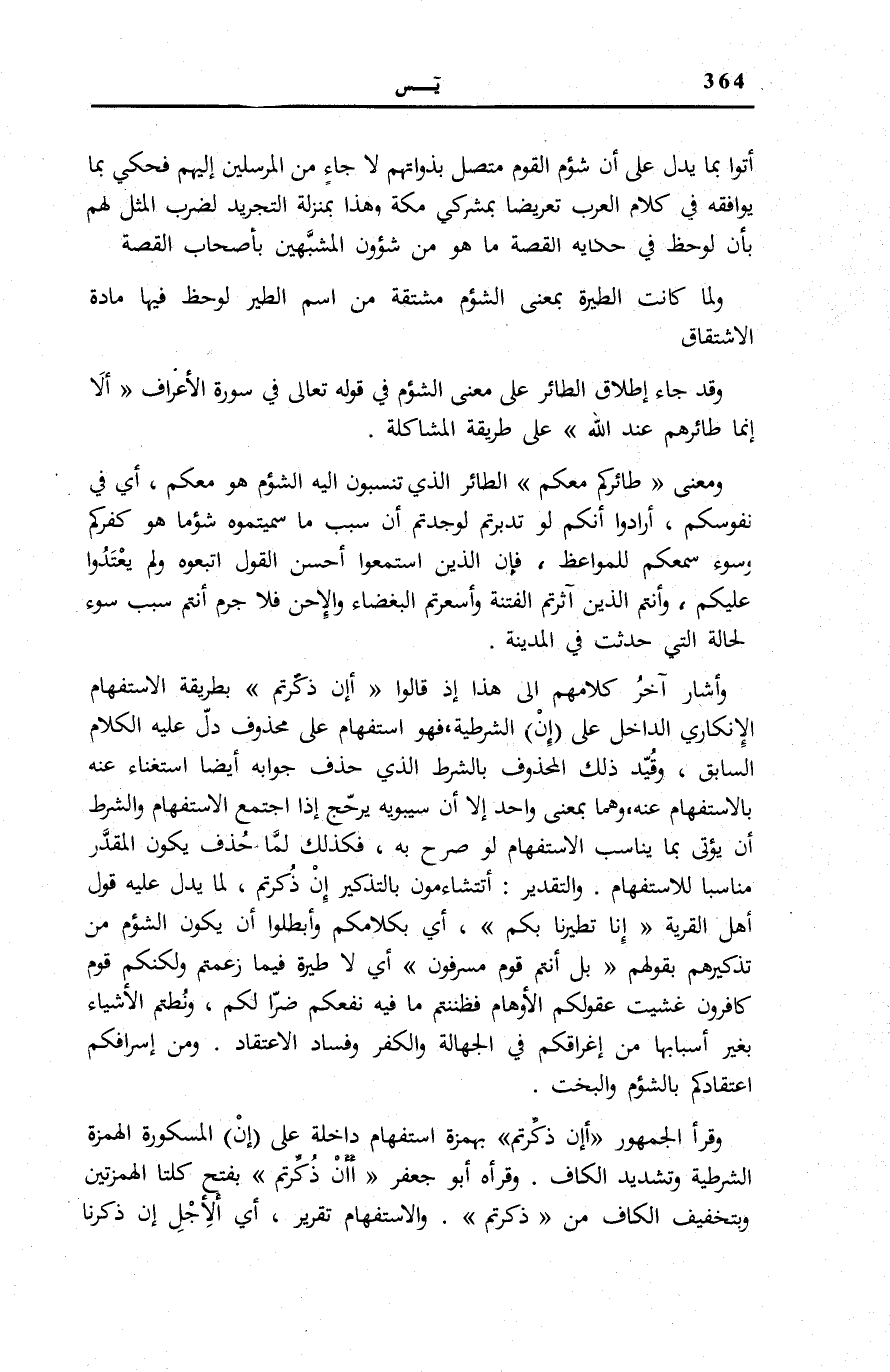 364
يَـــس
أتوا بما يدل على أن شؤم القوم متصل بذواتهم لا جاءٍ من المرسلين إليهم فحكي بما
يوافقه في كلام العرب تعريضا بمشركي مكة وهذا بمنزلة التجريد لضرب المثل لهم
بأن لوحظ في حكايه القصة ما هو من شؤون المشبَّهين بأصحاب القصة
ولما كانت الطيرة بمعنى الشؤم مشتقة من اسم الطير لوحظ فيها مادة
الاشتقاق
وقد جاء إطلاق الطائر على معنى الشؤم في قوله تعالى في سورة الأعراف « ألَا
إنما طائرهم عند الله » على طريقة المشاكلة .
ومعنى « طائركم معكم » الطائر الذي تنسبون اليه الشؤم هو معكم ، أي في
نفوسكم ، أرادوا أنكم لو تدبرتم لوجدتم أن سبب ما سميتموه شؤما هو كفركم
وسوء سمعكم للمواعظ ، فإن الذين استمعوا أحسن القول اتبعوه ولم يعْتَدُوا
عليكم ، وأنتم الذين آثرتم الفتنة وأسعرتم البغضاء والإحن فلا جرم أنتم سبب سوء
لحالة التي حدثت في المدينة .
وأشار آخرُ كلامهم الى هذا إذ قالوا « أإن ذكّرتم » بطريقة الاستفهام
الإنكاري الداخل على (إنْ) الشرطية،فهو استفهام على محذوف دلّ عليه الكلام
السابق ، وقُيّد ذلك المحذوف بالشرط الذي حذف جوابه أيضا استغناء عنه
بالاستفهام عنه،وهما بمعنى واحد إلا أن سيبويه يرجّح إذا اجتمع الاستفهام والشرط
أن يؤتى بما يناسب الاستفهام لو صرح به ، فكذلك لمَّا حُذف يكون المقدَّر
مناسبا للاستفهام . والتقدير : أتتشاءمون بالتذكير إنْ ذُكرتم ، لما يدل عليه قول
أهل القرية « إنا تطيرنا بكم » ، أي بكلامكم وأبطلوا أن يكون الشؤم من
تذكيرهم بقولهم « بل أنتم قوم مسرفون » أي لا طيرة فيما زعمتم ولكنكم قوم
كافرون غشيت عقولكم الأوهام فظننتم ما فيه نفعكم ضرّا لكم ، ونُطتم الأشياء
بغير أسبابها من إغراقكم في الجهالة والكفر وفساد الاعتقاد . ومن إسرافكم
اعتقادكم بالشؤم والبخت .
وقرأ الجمهور «أإن ذكِّرتم» بهمزة استفهام داخلة على (إنْ) المسكورة الهمزة
الشرطية وتشديد الكاف . وقرأه أبو جعفر « أَأَنْ ذُكِّرتم » بفتح كلتا الهمزتين
وبتخفيف الكاف من « ذكرتم » . والاستفهام تقرير ، أي أَلِأَجْلِ إن ذكرنا